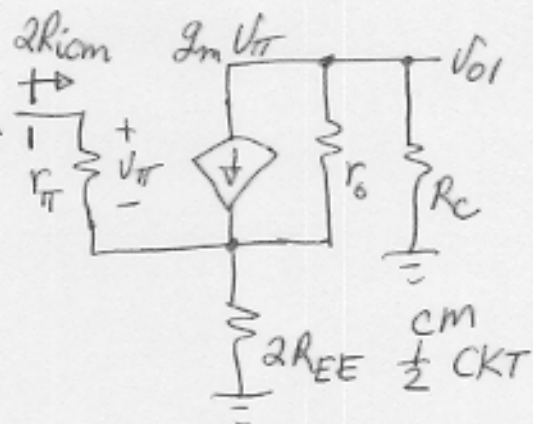 2Ricm
gmVπ
Vo1
rπ
+
Vπ
-
ro
RC
2REE
cm
1/2 CKT